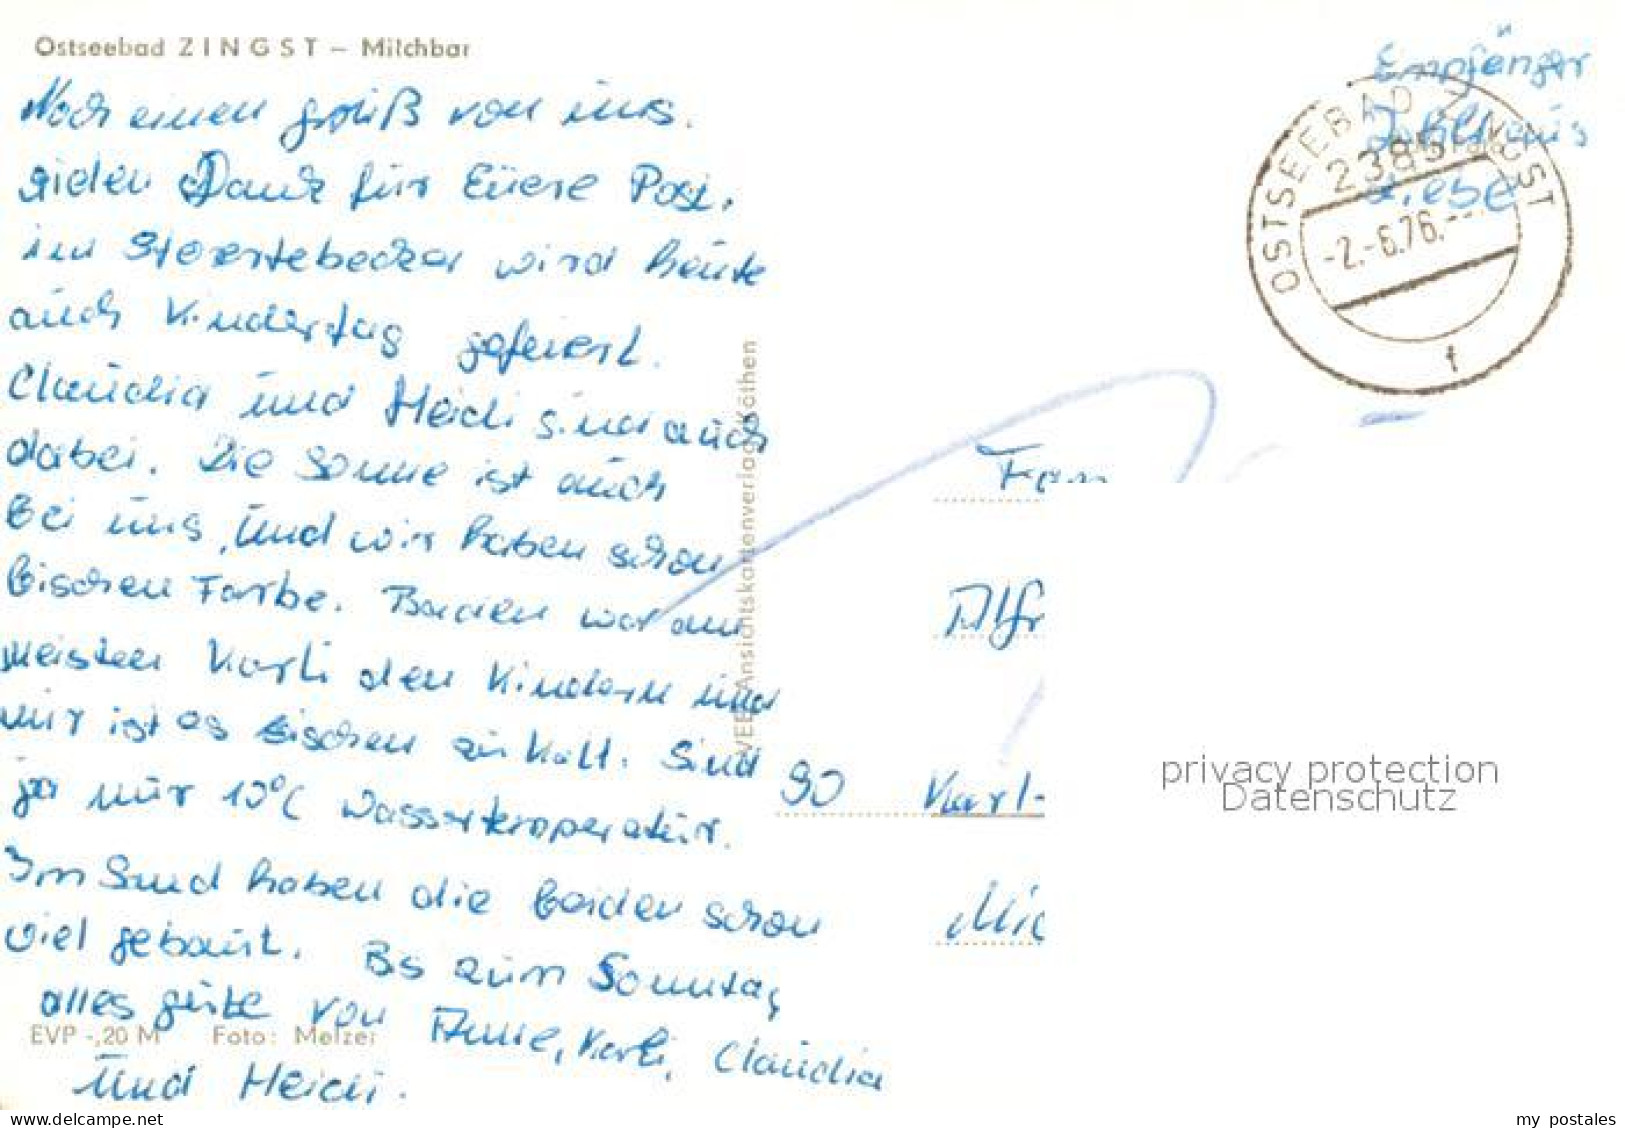 Ostseebad ZINGST – Milchbar
Noch einen gruß von uns.
Vielen Dank für Eüere Post.
im Stoertebecker wird heute
auch Kindertag gefeiert.
Claudia und Heidi sind auch
dabei. Die Sonne ist auch
Bei uns, und wir haben schon
bischen Farbe. Baden war am
meisten Karli den Kindern und
mir ist es bischen zu kalt. Sind
ja nur 10°C Wassertemperatur.
Im Sand haben die beiden schon
viel gebaut. Bs zum Sonntag
alles gute von Anne, Karli, Claudia
und Heidi.
EVP -,20 M Foto: Melzer
VEB Ansichtskartenverlag Köthen
Empfänger
OSTSEEBAD ZINGST
2385
-2.-6.76.--
f
Fam
Alfr
90 Karl-
privacy protection
Datenschutz
delcampe.net
my_postales